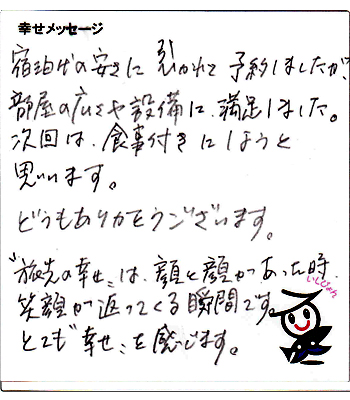 幸せメッセージ
宿泊代の安さに引かれて予約しましたが、
部屋の広さや設備に、満足しました。
次回は、食事付きにしようと
思います。
どうもありがとうございます。
"旅先の幸せ"は、顔と顔があった時、
笑顔が返ってくる瞬間です。
とても"幸せ"を感じます。